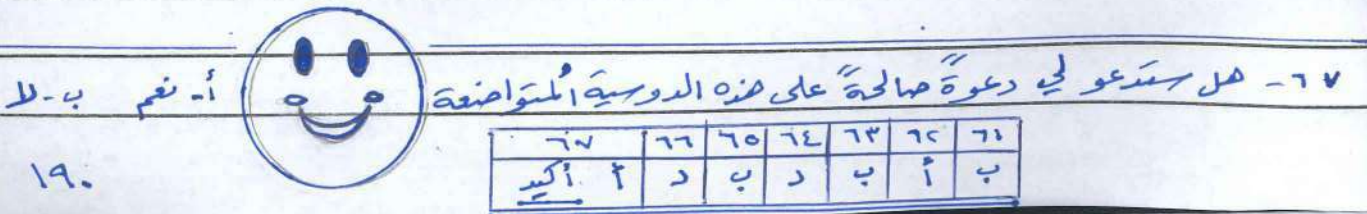 ٦٧- هل ستدعو لي دعوةً صالحةً على هذه الدوسية المُتواضعة أ- نعم ب- لا
٦١ ٦٢ ٦٣ ٦٤ ٦٥ ٦٦ ٦٧
ب أ ب د ب د أ أكيد
١٩٠